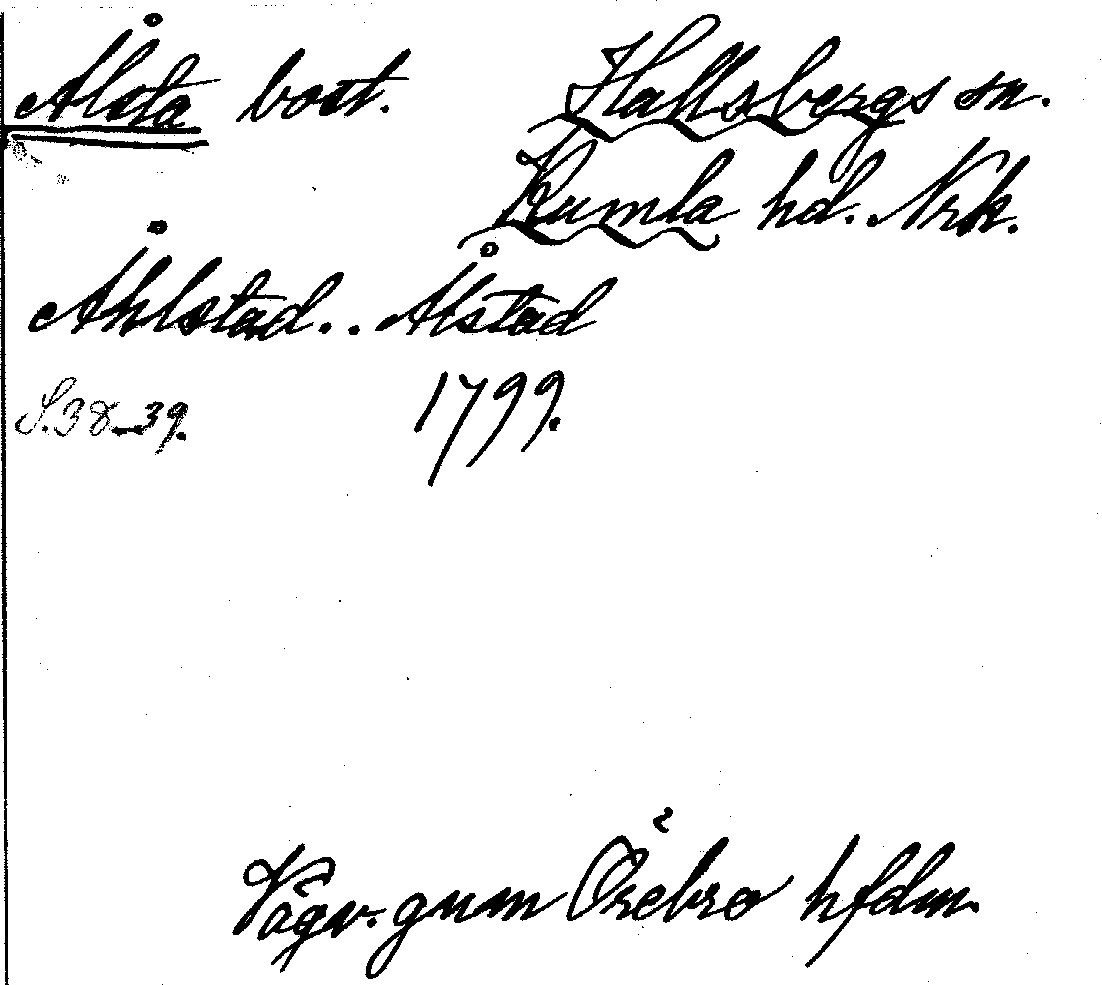 Ålsta bost. Hallsbergs sn.
Kumla hd. Nrk.
Åhlstad.. Ålstad
S. 38-39. 1799.
Vägv. gnm Örebro hfdm.